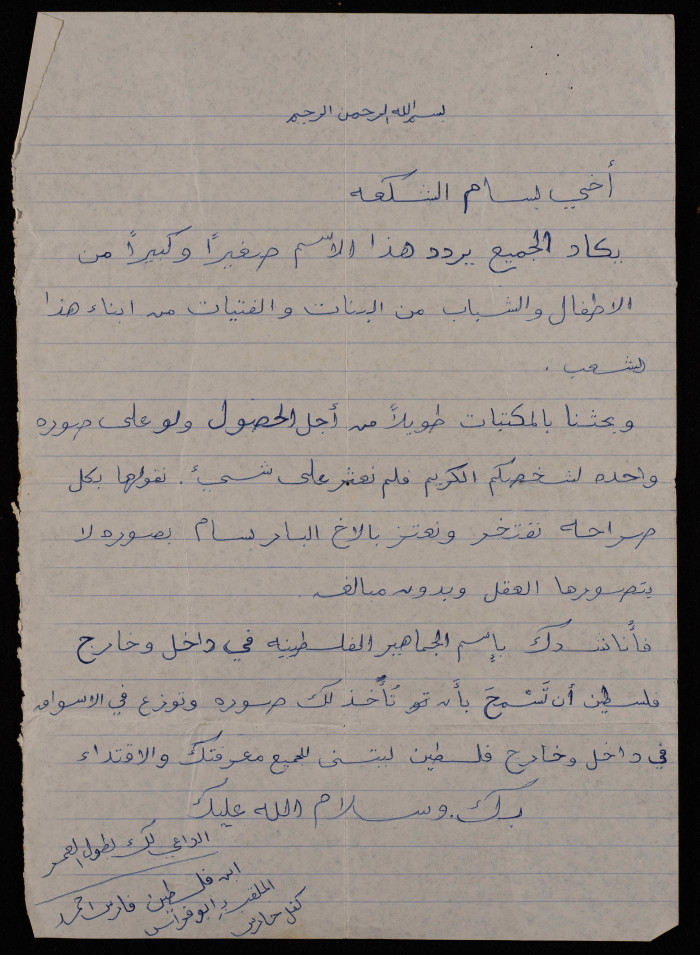 بسم الله الرحمن الرحيم
أخي بسام الشكعه
يكاد الجميع يردد هذا الاسم صغيراً وكبيراً من
الاطفال والشباب من البنات والفتيات من ابناء هذا
الشعب .
وبحثنا بالمكتبات طويلاً من أجل الحصول ولو على صوره
واحده لشخصكم الكريم فلم نعثر على شيء . نقولها بكل
صراحه نفتخر ونعتز بالاخ البار بسام بصوره لا
يتصورها العقل وبدون مبالغه .
فأناشدك بإسم الجماهير الفلسطينيه في داخل وخارج
فلسطين أن تَسْمحَ بأن تُأخذ لك صوره وتوزع في الاسواق
في داخل وخارج فلسطين ليتسنى للجميع معرفتك والاقتداء
بك . وسلام الله عليك
الداعي لك بطول العمر
ابن فلسطين فارس احمد
الملقب بـ ابو فراس
كفل حارس